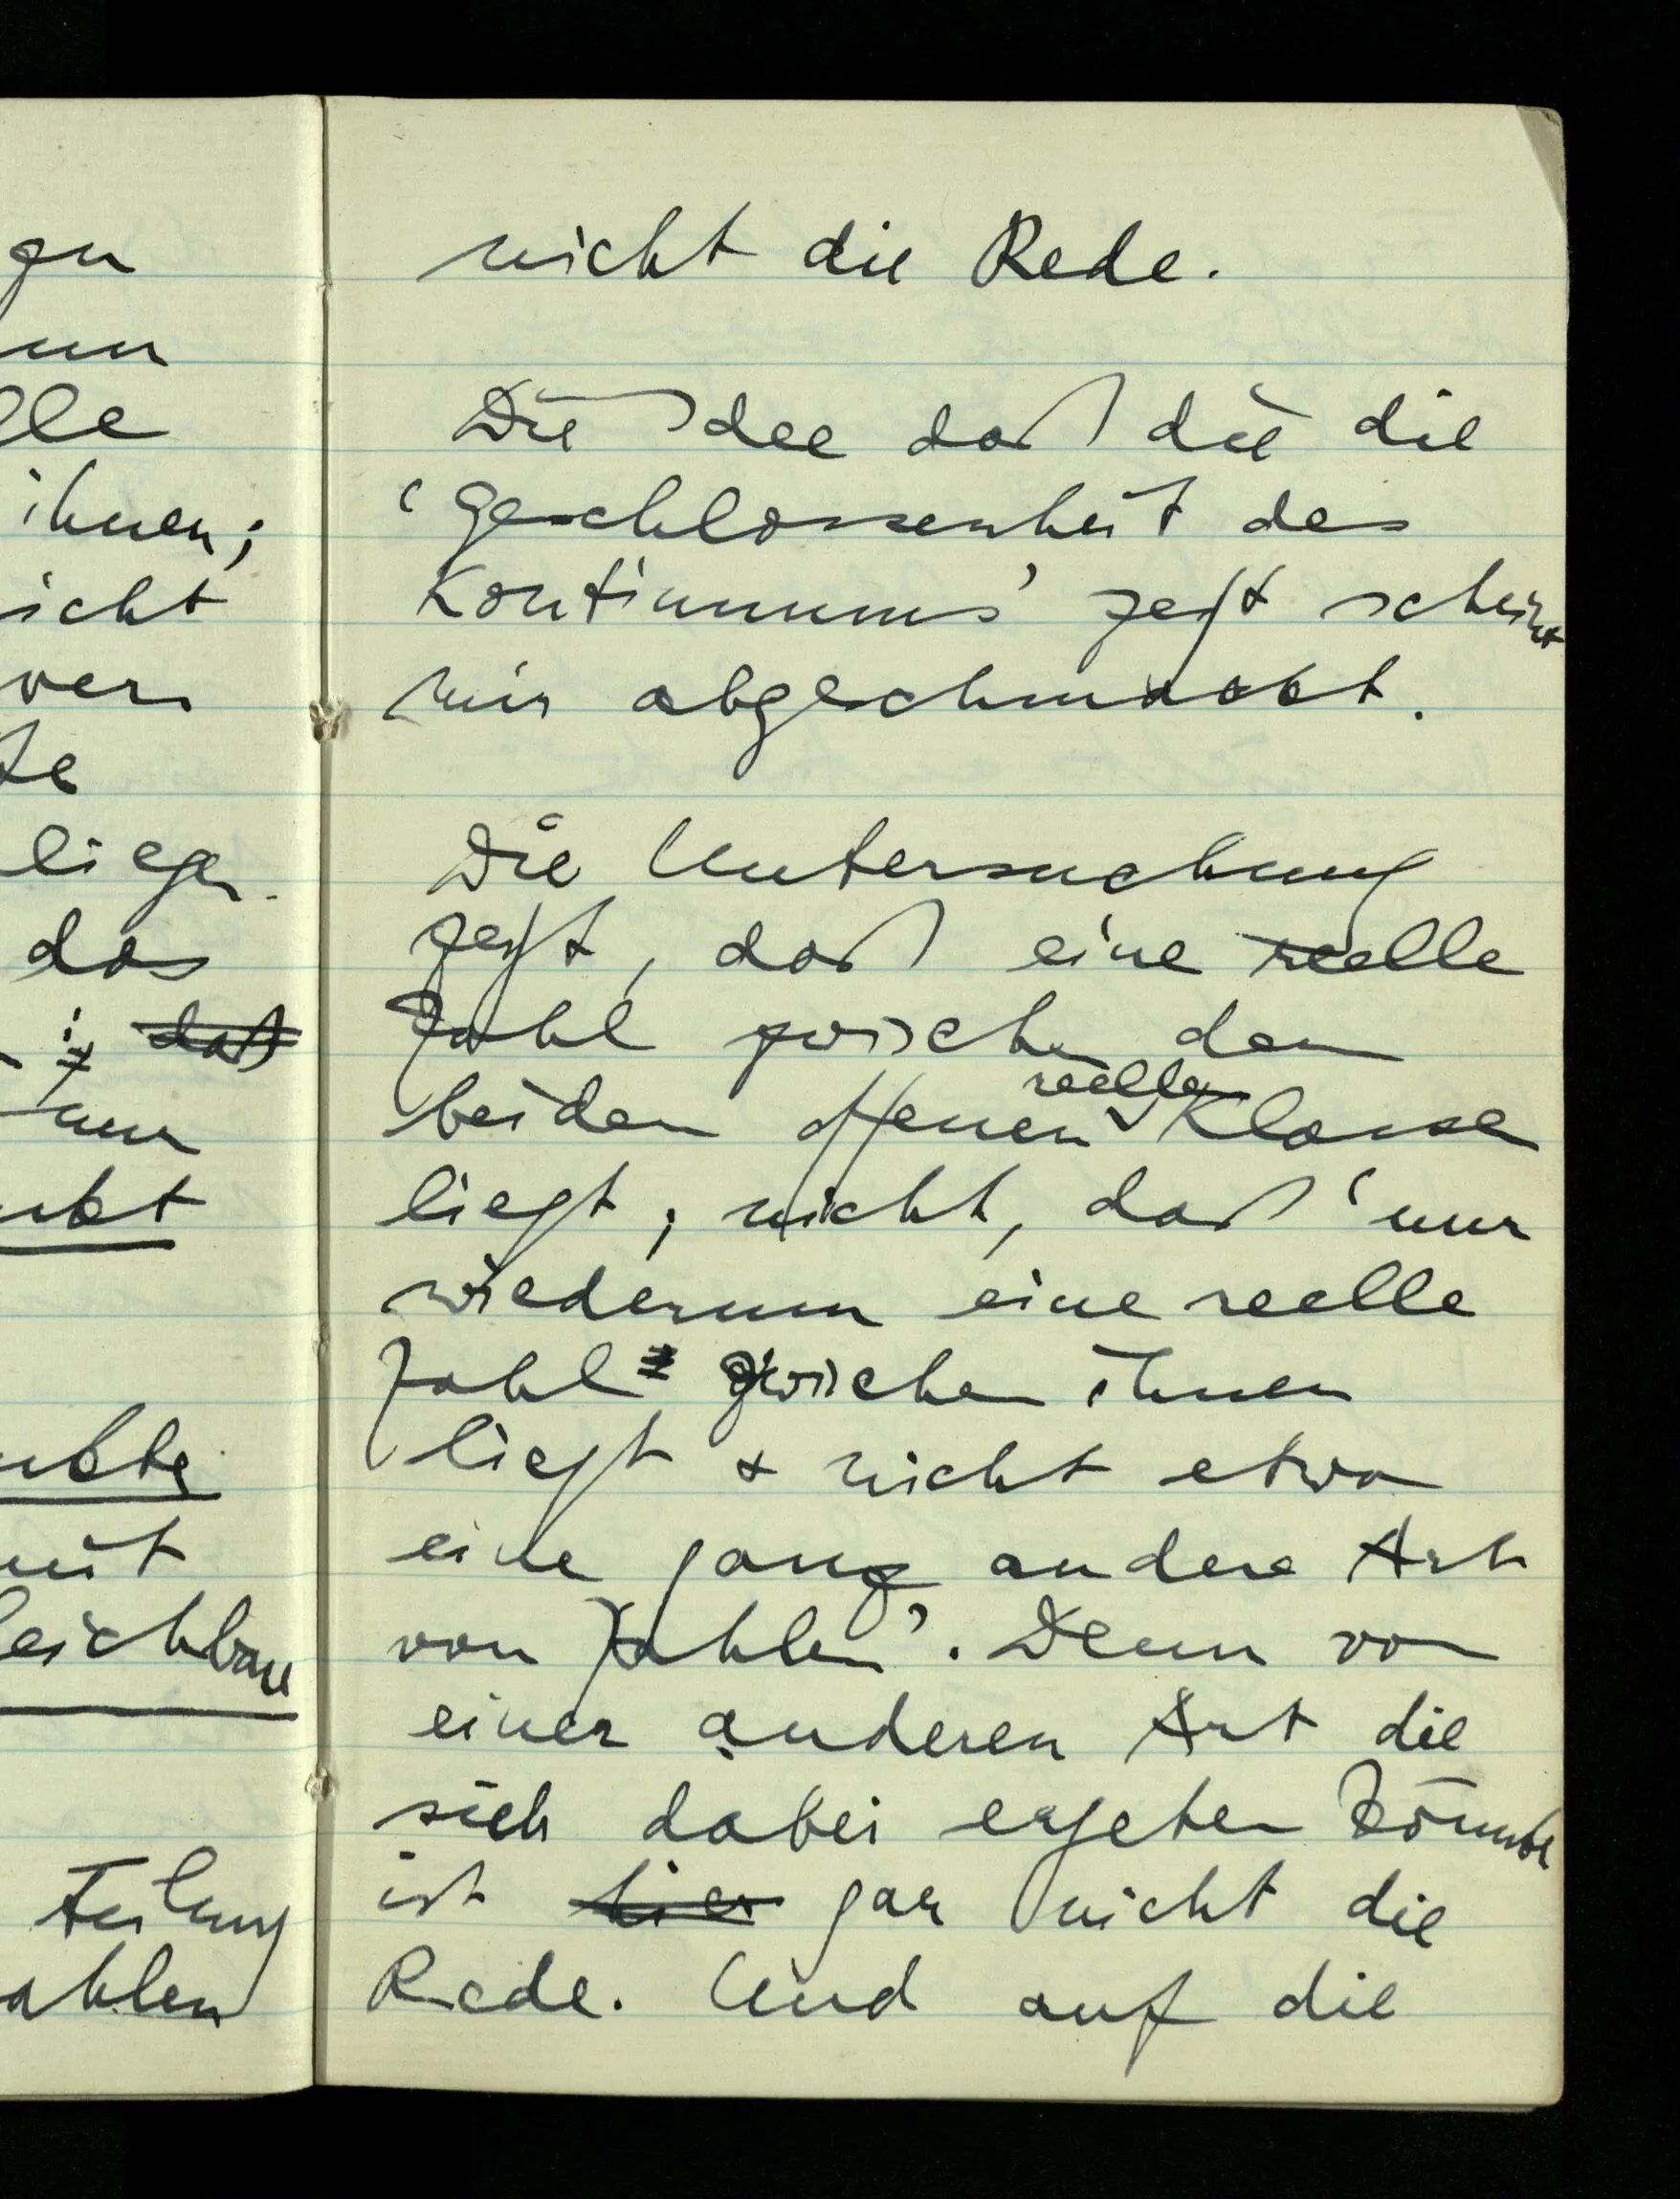 zu
ihnen;
icht
ver
te
liegen.
das
; daß
ukt
ukte
mit
leichbare
Teilung
ahlen
nicht die Rede.
Die Idee daß die die
'Geschlossenheit des
Kontinuums' zeigt scheint
mir abgeschmackt.
Die Untersuchung
zeigt, daß eine reelle
Zahl zwischen den
reellen
beiden offenen Klassen
liegt; nicht, daß 'nur
wiederum eine reelle
Zahl zwischen ihnen
liegt & nicht etwa
eine ganz andere Art
von Zahlen'. Denn von
einer anderen Art die
sich dabei ergeben könnte
ist hier gar nicht die
Rede. Und auf die